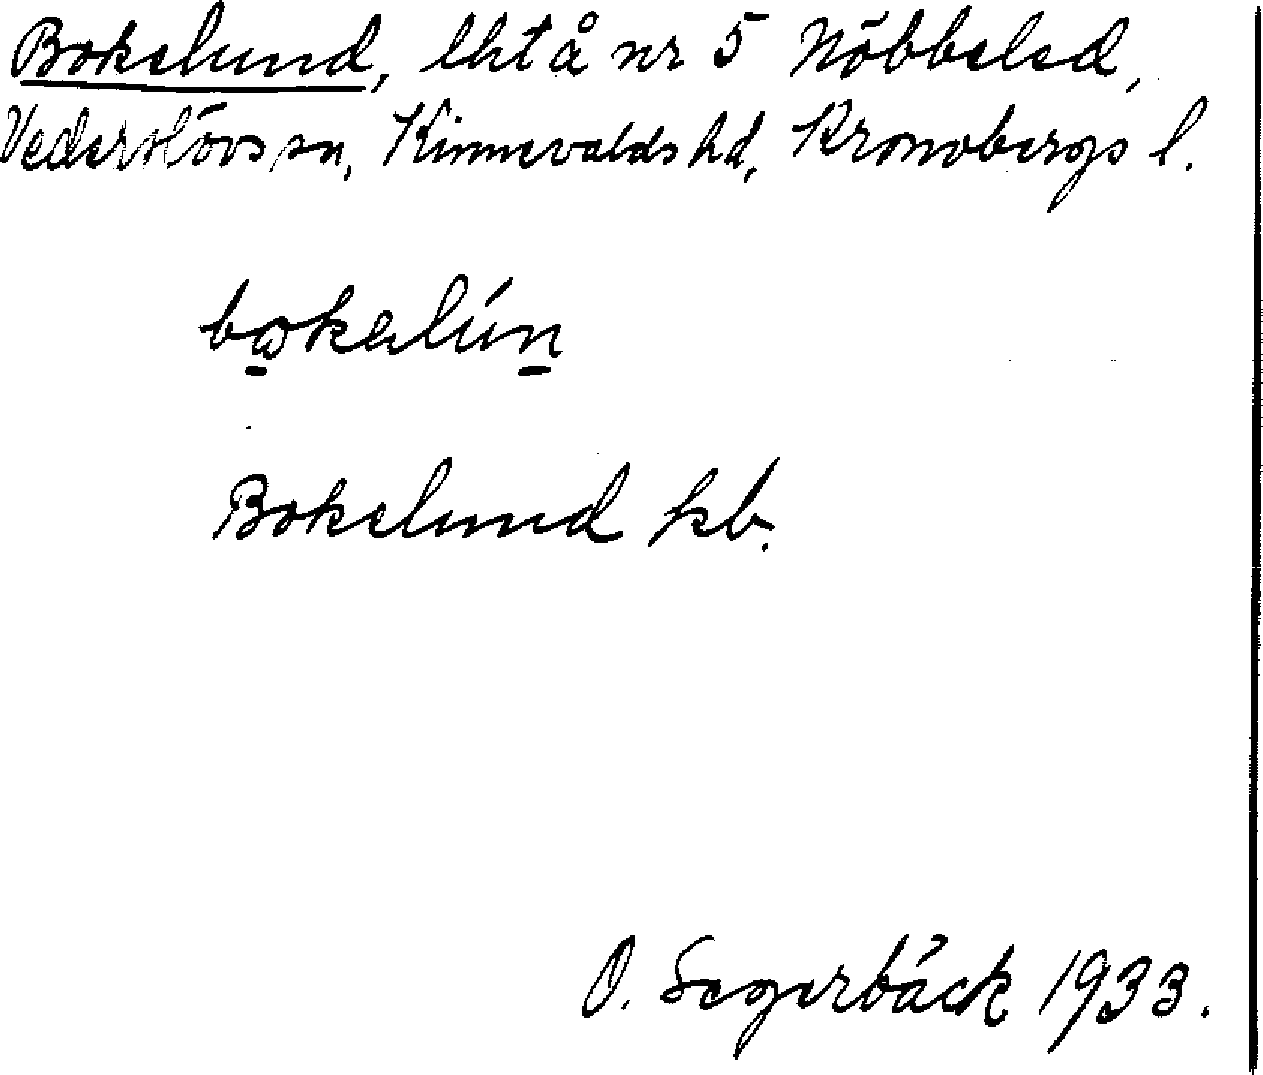 Bokelund, lht å nr 5 Nöbbeled,
Vederslövs sn, Kinnevalds hd, Kronobergs l.
bokəlún
Bokelund kb.
O. Segerbäck 1933.